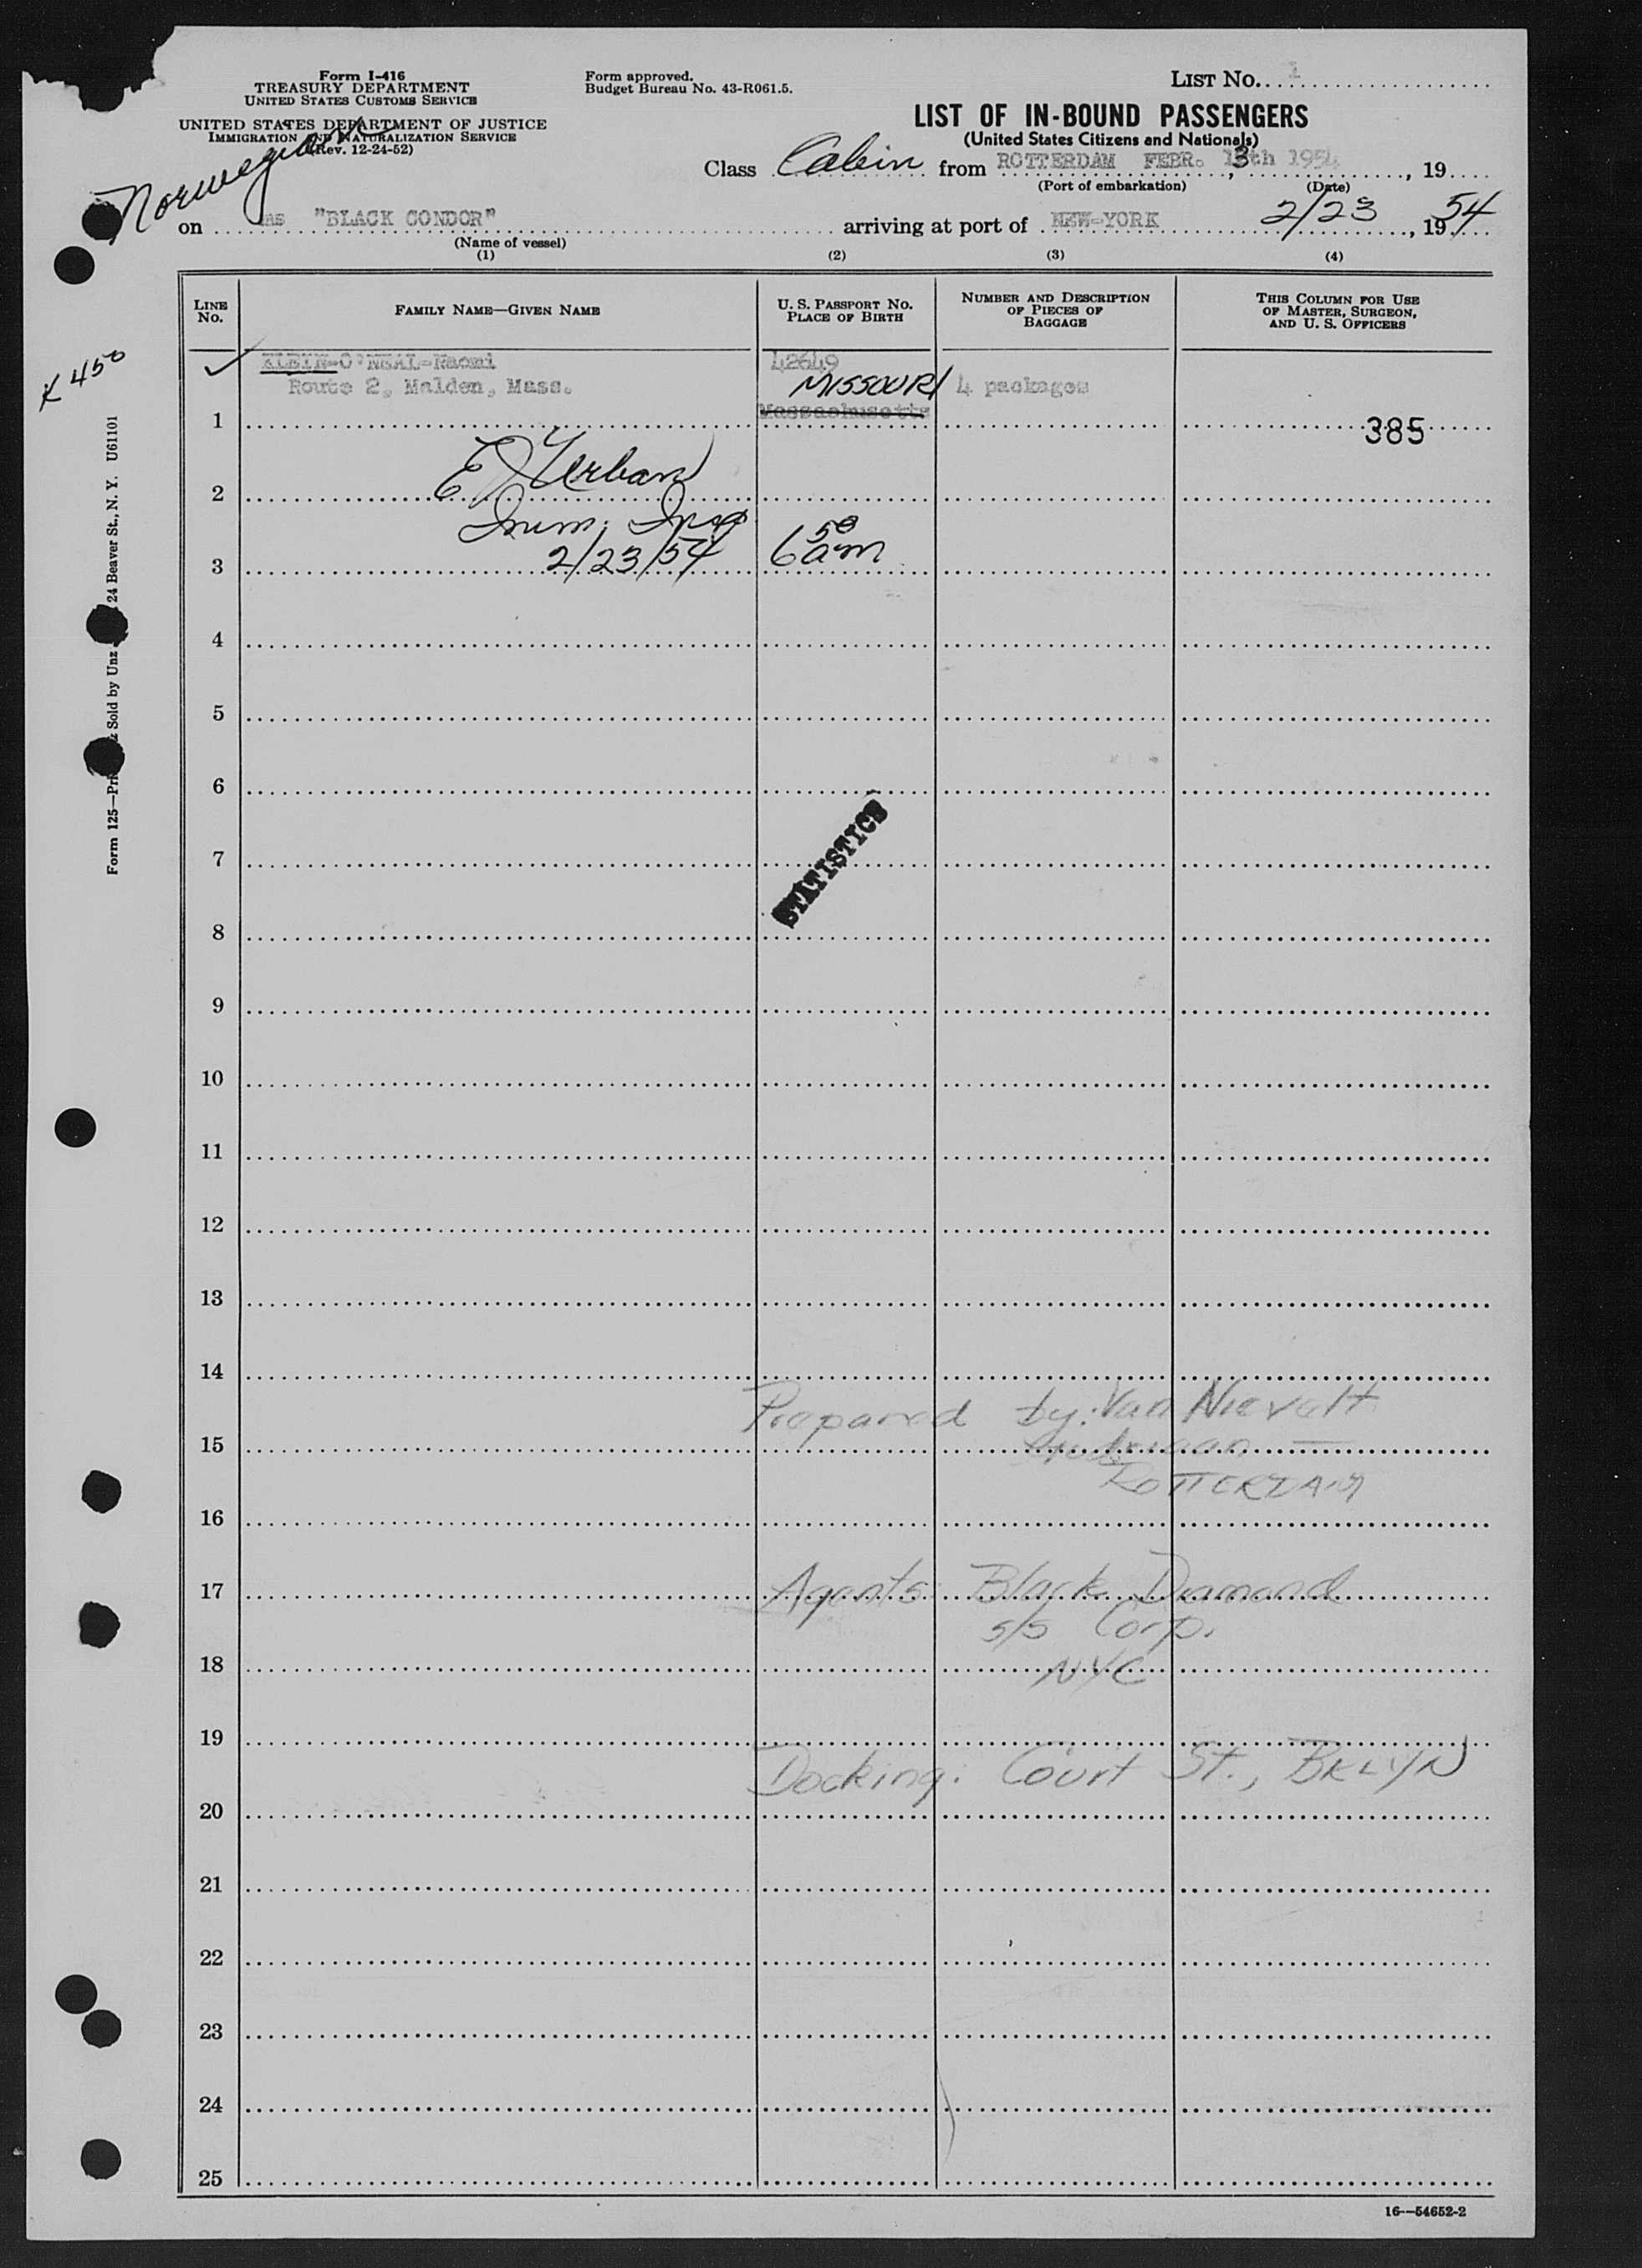 Form I-416
TREASURY DEPARTMENT
UNITED STATES CUSTOMS SERVICE
UNITED STATES DEPARTMENT OF JUSTICE
IMMIGRATION AND NATURALIZATION SERVICE
(Rev. 12-24-52)
Norwegian
Form approved.
Budget Bureau No. 43-R061.5.
LIST No. 1
LIST OF IN-BOUND PASSENGERS
(United States Citizens and Nationals)
Class Cabin from ROTTERDAM FEBR. 13th 1954, 19
(Port of embarkation) (Date)
on ms "BLACK CONDOR" arriving at port of NEW-YORK 2/23, 1954
(Name of vessel)
(1) (2) (3) (4)
LINE No.
FAMILY NAME—GIVEN NAME
U. S. PASSPORT No.
PLACE OF BIRTH
NUMBER AND DESCRIPTION
OF PIECES OF
BAGGAGE
THIS COLUMN FOR USE
OF MASTER, SURGEON,
AND U. S. OFFICERS
K 450
-O'NEAL-Naomi 42649
Route 2, Malden, Mass. MISSOURI 4 packages
1 Massachusetts 385
E J Urban
2
Imm. Insp
3 2/23/54 6 50 am
4
5
6
STATISTICS
7
8
9
10
11
12
13
14
Prepared by: Van Nievelt
15
ROTTERDAM
16
17 Agents Black Diamond
s/s Corp.
18 NYC
19
Docking: Court St., BKLYN
20
21
22
23
24
25
16—54652-2
Form 125—Pri Sold by Unz 24 Beaver St., N. Y. U61101